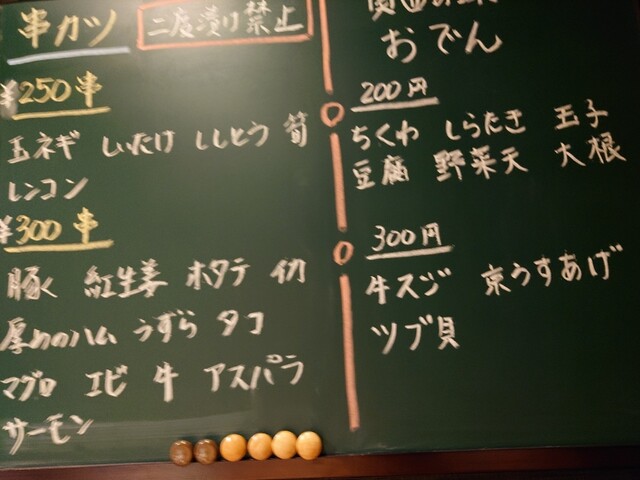 串カツ 二度漬け禁止
¥250串
玉ネギ しいたけ ししとう 筍
レンコン
¥300串
豚く 紅生姜 ホタテ
厚めのハム うずら タコ
マグロ エビ 牛 アスパラ
サーモン
おでん
200円
ちくわ しらたき 玉子
豆腐 野菜天 大根
300円
牛スジ 京うすあげ
ツブ貝